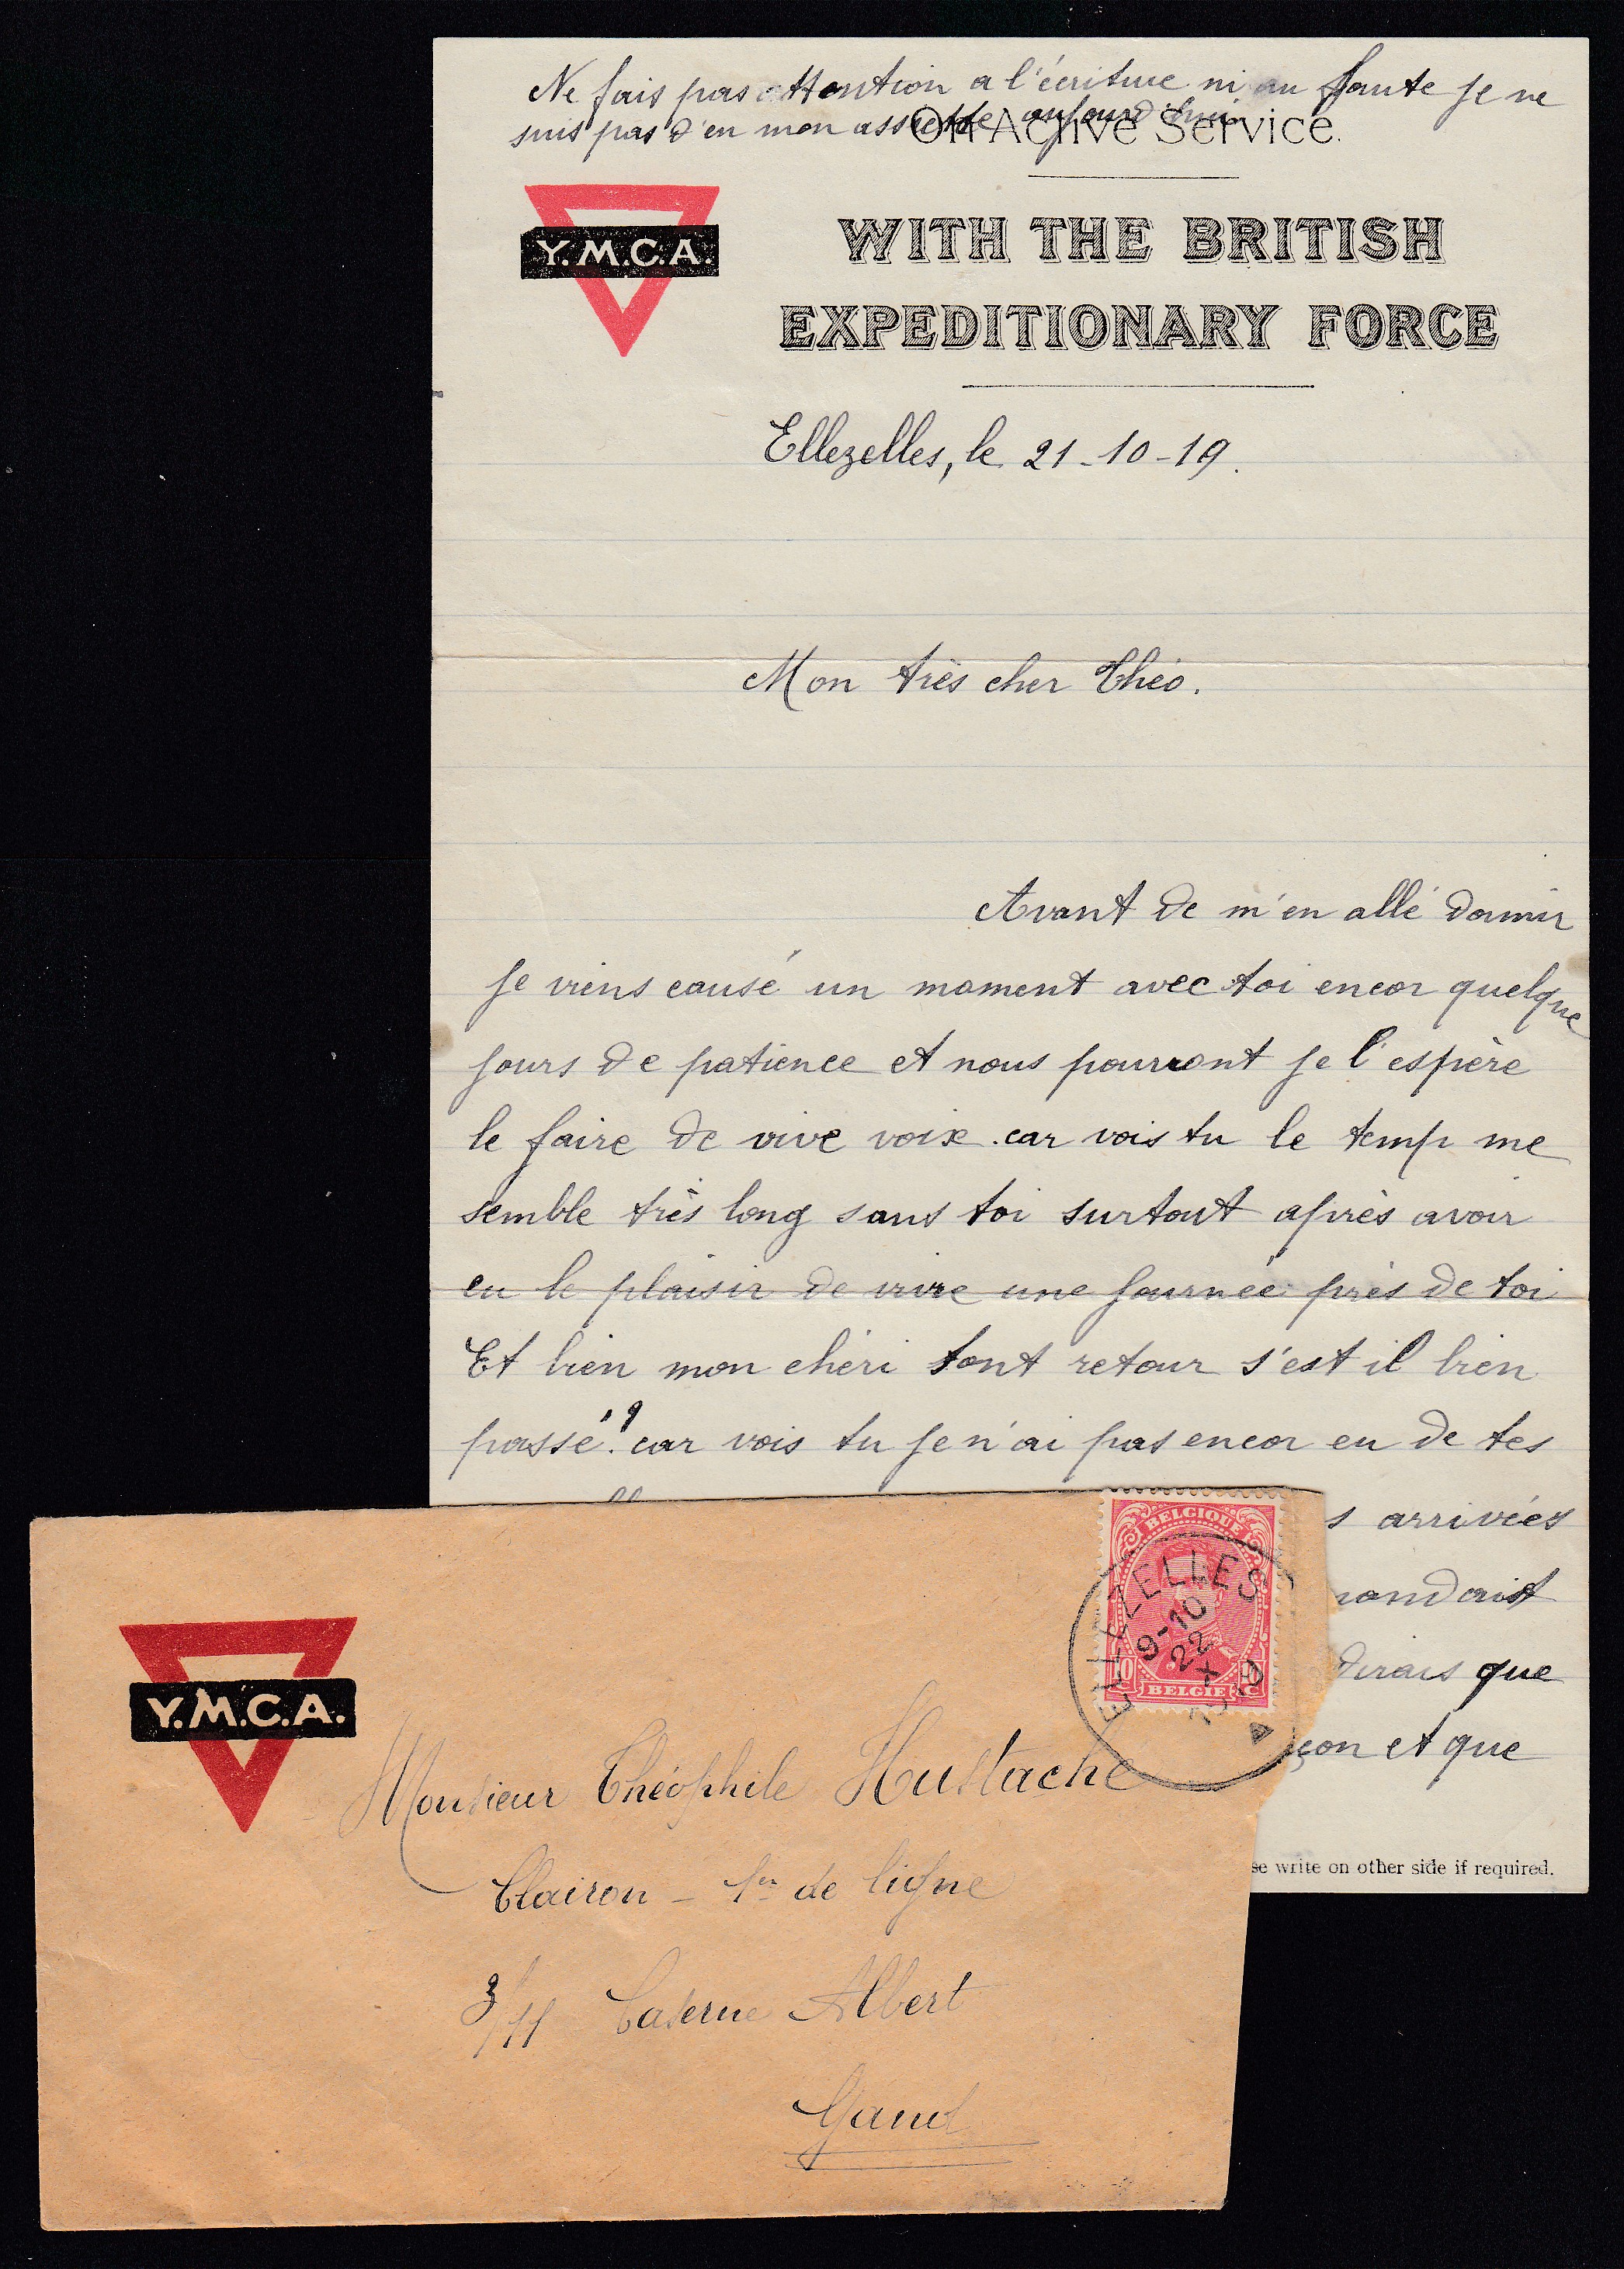 Ne fais pas attention a l'écriture ni au faute je ne
suis pas d'en mon assiette aujourd'hui
On Active Service.
Y.M.C.A.
WITH THE BRITISH
EXPEDITIONARY FORCE
Ellezelles, le 21-10-19.
Mon très cher Théo.
Avant de m'en allé dormir
je viens causé un moment avec toi encor quelque
jours de patience et nous pourront je l'espère
le faire de vive voix. car vois tu le temp me
semble très long sans toi surtout après avoir
eu le plaisir de vivre une journée près de toi
Et bien mon chéri tont retour s'est il bien
passé? car vois tu je n'ai pas encor eu de tes
s arrivées
mandait
dirais que
çon et que
se write on other side if required.
BELGIQUE
ELLEZELLES
9-10
22
X
10
BELGIE
C
Y.M.C.A.
Monsieur Théophile Hustache
Clairon - 1er de ligne
3/11 Caserne Albert
Gand